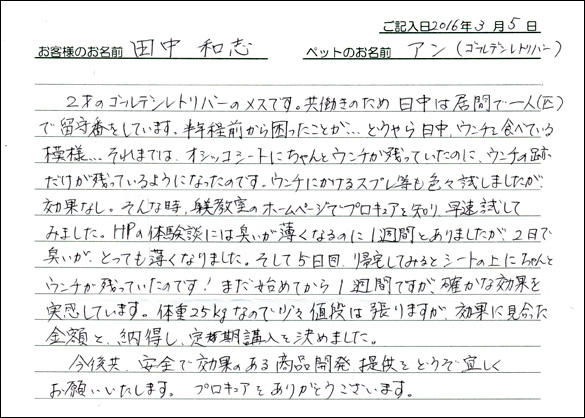 ご記入日2016年3月5日
お客様のお名前 田中 和志 ペットのお名前 アン(ゴールデンレトリバー)
2才のゴールデンレトリバーのメスです。共働きのため日中は居間で一人(匹)
で留守番をしています。半年程前から困ったことが…どうやら日中、ウンチを食べている
模様… それまでは、オシッコシートにちゃんとウンチが残っていたのに、ウンチの跡
だけが残っているようになったのです。ウンチにかけるスプレー等も色々試しましたが、
効果なし。そんな時、躾教室のホームページでプロキュアを知り、早速試して
みました。HPの体験談には臭いが薄くなるのに1週間とありましたが、2日で
臭いが、とっても薄くなりました。そして5日目、帰宅してみるとシートの上にちゃんと
ウンチが残っていたのです! まだ始めてから1週間ですが、確かな効果を
実感しています。体重25kgなので少々値段は張りますが、効果に見合った
金額と、納得し、定期購入を決めました。
今後共、安全で効果のある商品開発、提供をどうぞ宜しく
お願いいたします。 プロキュアをありがとうございます。